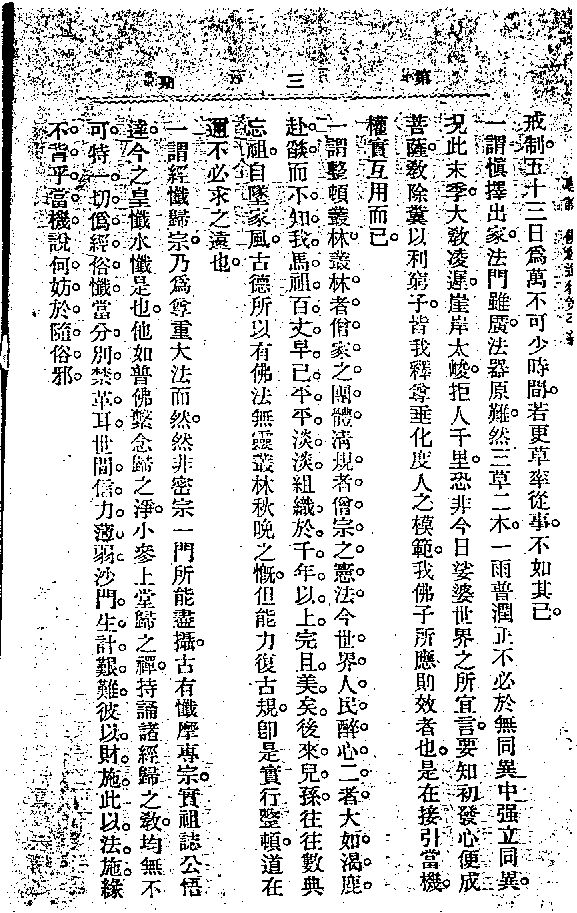 第三期
戒制五十三日爲萬不可少時間。若更草率從事。不如其已。
一謂愼擇出家。法門雖廣。法器原難。然三草二木。一雨普潤。正不必於無同異中强立同異。
况此末季。大敎凌遲。崖岸太峻。拒人千里。恐非今日娑婆世界之所宜言。要知初發心便成
菩薩。敎除糞以利窮子。皆我釋尊垂化度人之模範。我佛子所應則效者也。是在接引當機。
權實互用而已。
一謂整頓叢林。叢林者僧家之團體。淸規者僧宗之憲法。今世界人民醉心二者。大如渴鹿
赴燄。而不知我馬祖百丈。早已平平淡淡。組織於千年以上。完且美矣。後來兒孫。往往數典
忘祖。自墜家風。古德所以有佛法無靈叢林秋晚之慨。但能力復古規。卽是實行整頓。道在
邇不必求之遠也。
一謂經懺歸宗。乃爲尊重大法而然。然非密宗一門所能盡攝。古有懺摩專宗。實祖誌公悟
達。今之皇懺水懺是也。他如普佛繫念歸之淨。小參上堂歸之禪。持誦諸經歸之敎。均無不
可。特一切僞經俗懺。當分別禁革耳。世間信力薄弱。沙門生計艱難。彼以財施。此以法施。緣
不背乎當機。說何妨於隨俗邪。